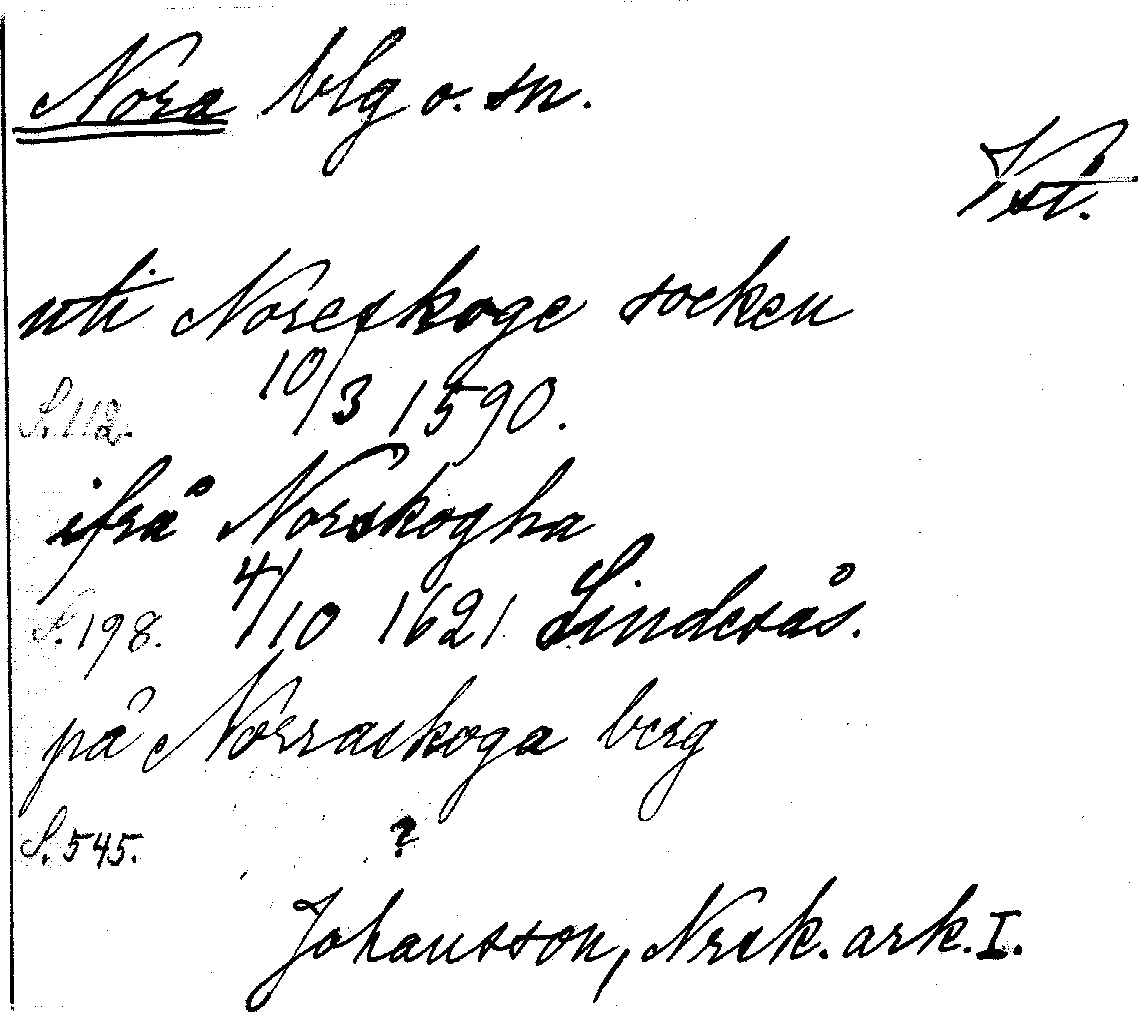 Nora blg o. sn.
Vst.
uti Noreskoge socken
S. 112. 10/3 1590.
ifrå Norskogha
S. 198. 4/10 1621 Lindesås.
på Norraskoga berg
S. 545. ?
Johansson, Nrsk. ark. I.